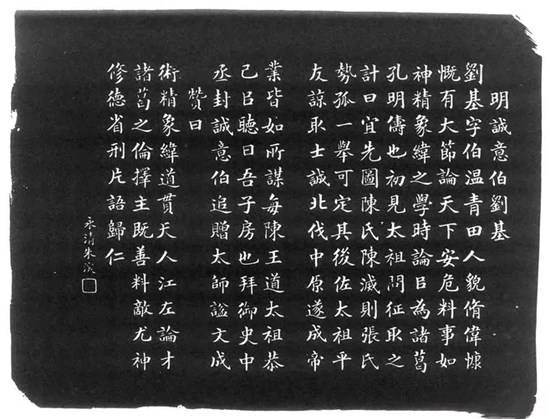 明誠意伯劉基
劉基字伯温青田人貌脩偉慷
慨有大節論天下安危料事如
神精象緯之學時論㠯為諸葛
孔明儔也初見太祖問征取之
計曰宜先圖陳氏陳滅則張氏
勢孤一舉可定其後佐太祖平
友諒取士誠北伐中原遂成帝
業皆如所謀每陳王道太祖恭
己㠯聽曰吾子房也拜御史中
丞封誠意伯追贈太師諡文成
贊曰
術精象緯道貫天人江左論才
諸葛之倫擇主既善料敵尤神
修德省刑片語歸仁
永清朱